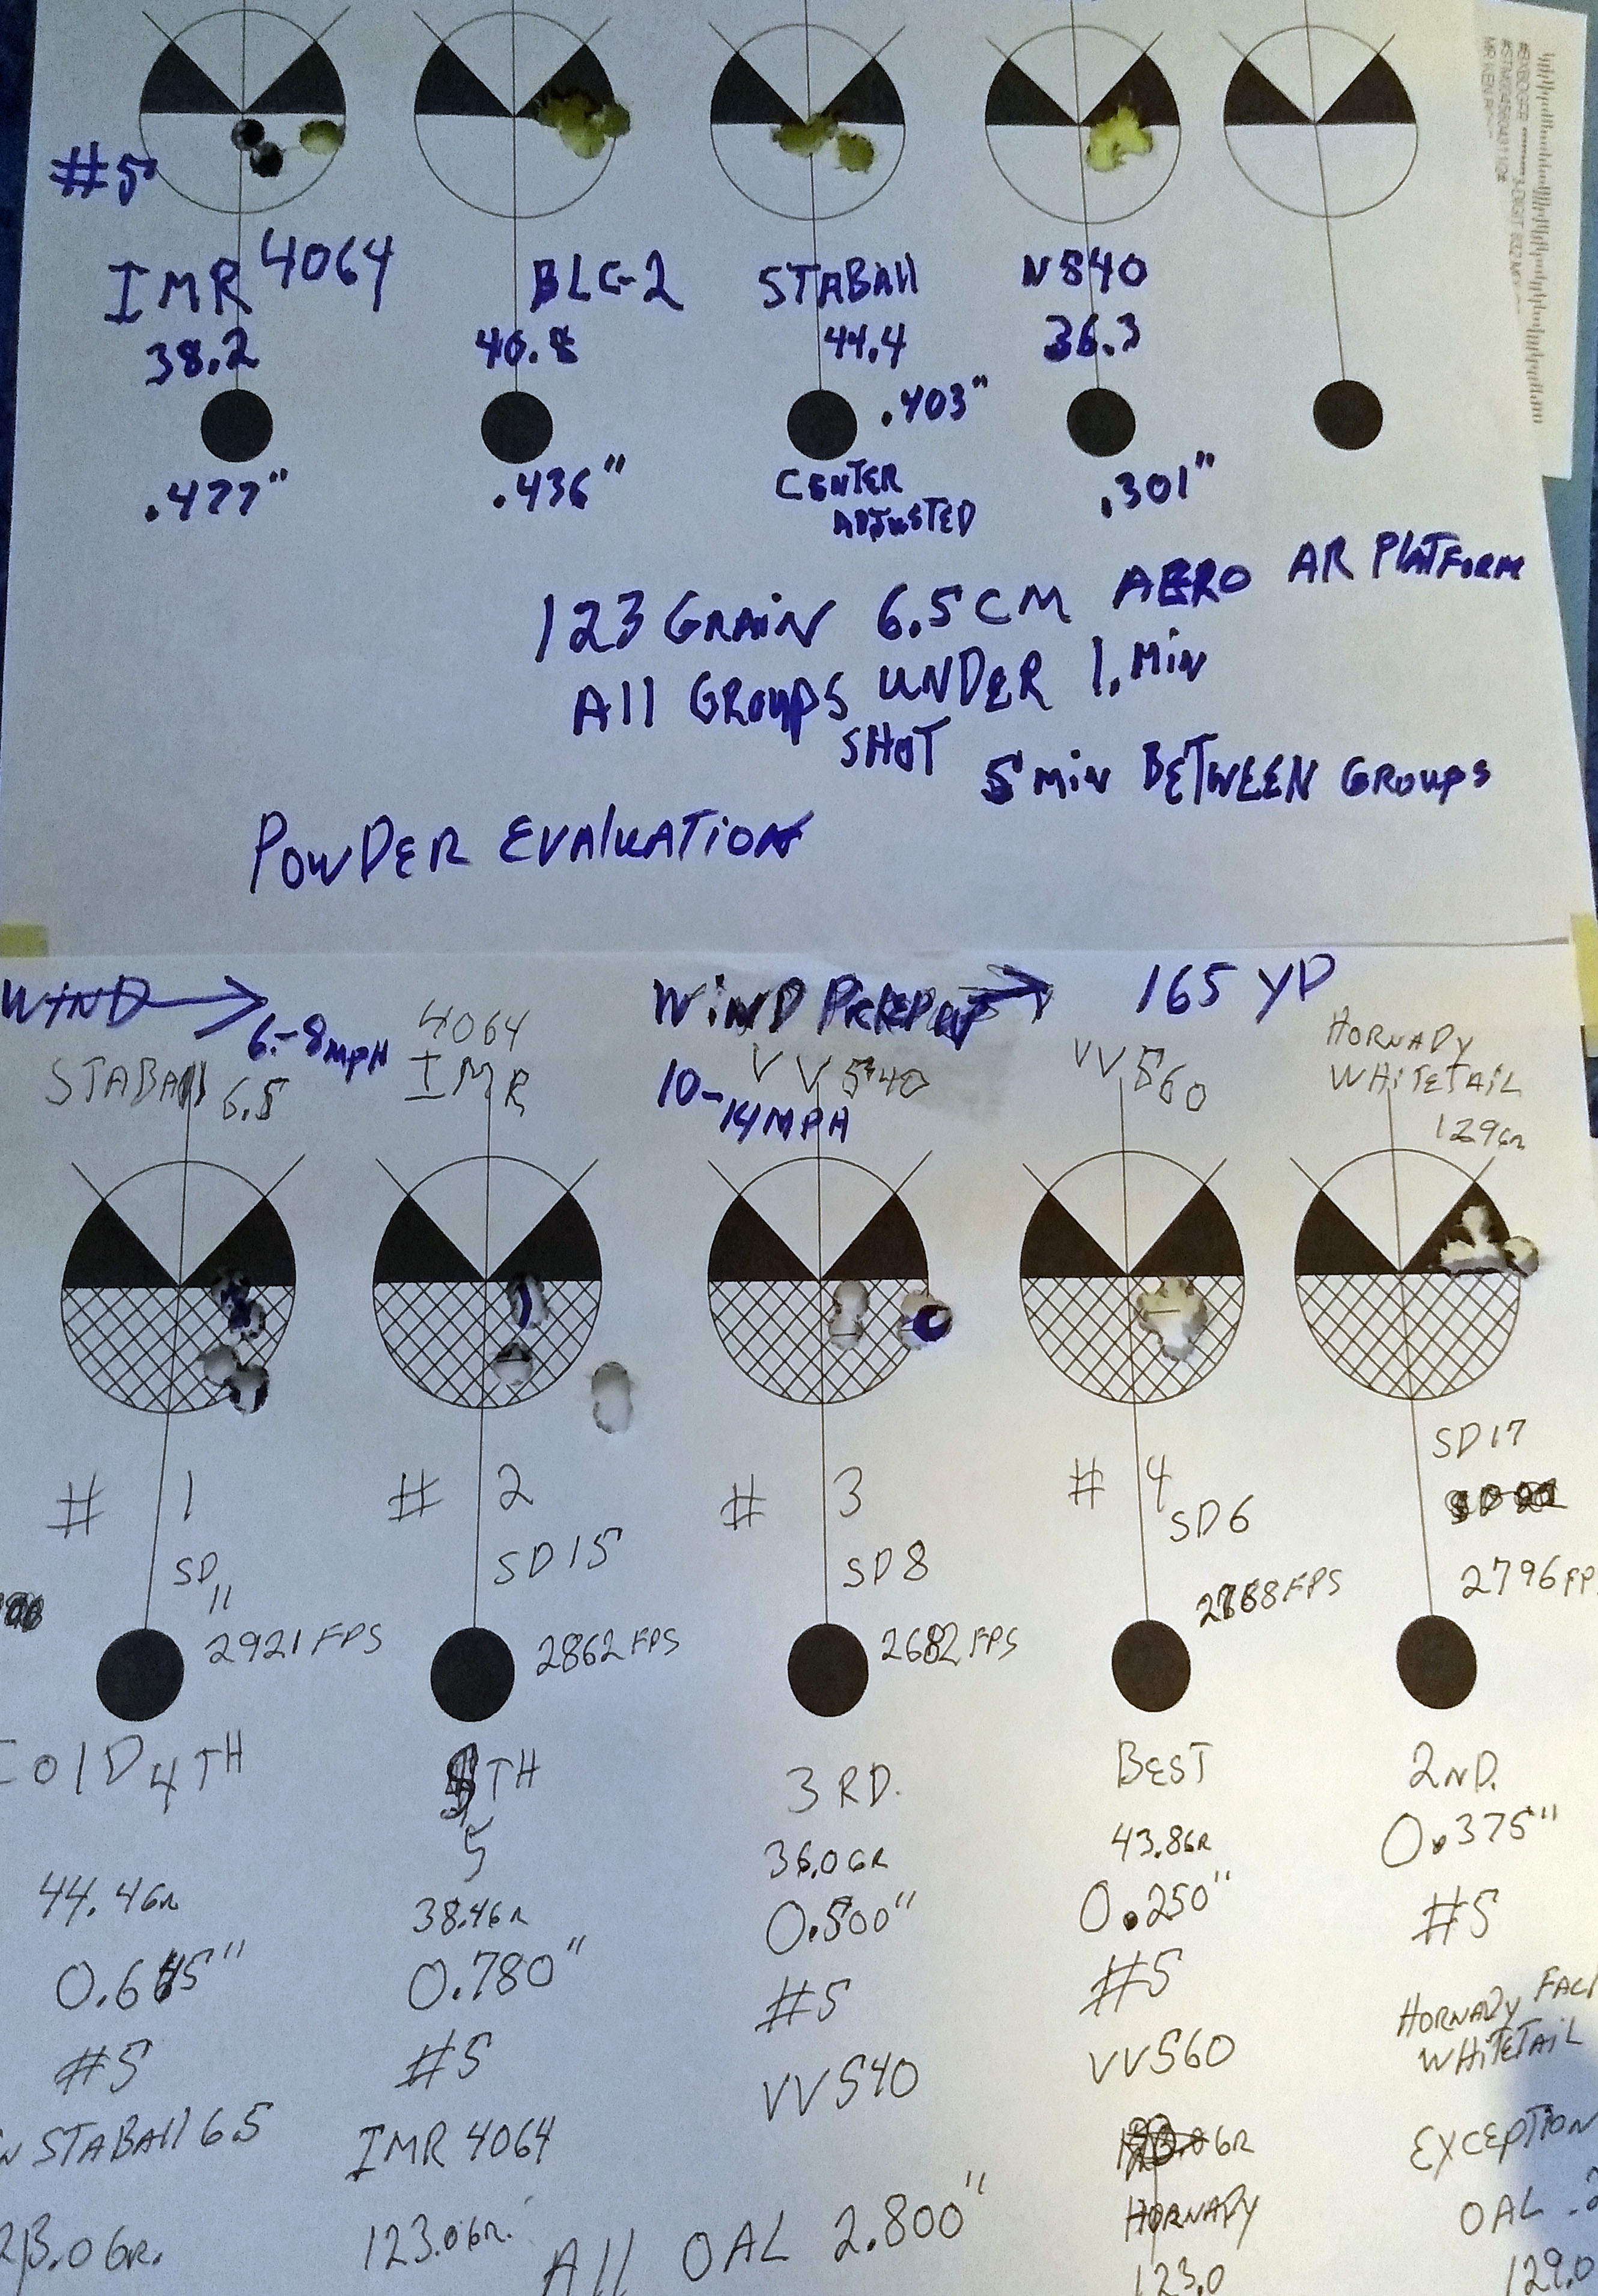 #5
IMR 4064
38.2
.477"
BLC-2
.436"
STABAll
44.4
.403"
CENTER
ADJUSTED
N540
36.3
.301"
123 GRAIN 6.5 CM AERO AR PLATFORM
All GROUPS UNDER 1.MIN
SHOT 5 MIN BETWEEN GROUPS
POWDER EVALUATION
WIND
6-8MPH
WIND
10-14MPH
165 YD
STABAll 6.5
4064
IMR
VV 540
VV560
HORNADY
WHITETAIL
129GR
# 1
SD 11
2921 FPS
# 2
SD 15
2862 FPS
# 3
SD 8
2682 FPS
# 4
SD 6
SD 17
2796
COlD 4TH
44.4GR
#5
STABAll 6.5
TH
5
38.4GR
0.780"
#5
IMR 4064
123.0GR.
3RD.
36.0GR
0.500"
#5
VV540
BEST
43.8GR
0.250"
#5
VV560
GR
HORNADY
123.0
2ND.
0.375"
#5
HORNADY
WHITETAIL
EXCEPTION
OAL
129.0
All OAL 2.800"